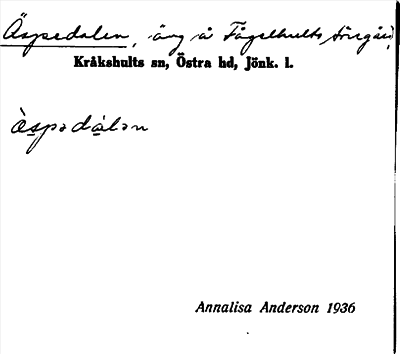 Äspedalen, äng å Fågelhults Norrgård,
Kråkshults sn, Östra hd, Jönk. l.
ä̀spədàlən
Annalisa Anderson 1936